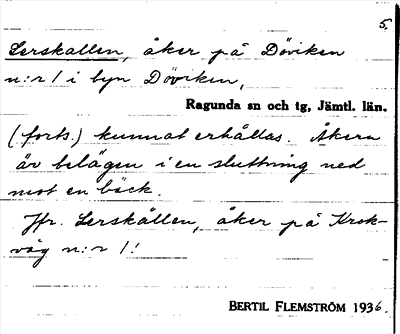 5.
Lerskallen, åker på Döviken
n:r 1 i byn Döviken,
Ragunda sn och tg, Jämtl. län.
(forts.) kunnat erhållas. Åkern
är belägen i en sluttning ned
mot en bäck.
Jfr. Lerskållen, åker på Krok-
våg n:r 1!
BERTIL FLEMSTRÖM 1936.